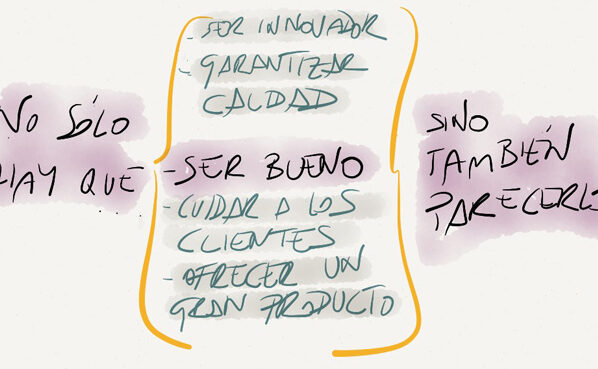 NO SÓLO
HAY QUE
- SER INNOVADOR
- GARANTIZAR
CALIDAD
- SER BUENO
- CUIDAR A LOS
CLIENTES
- OFRECER UN
GRAN PRODUCTO
SINO
TAMBIÉN
PARECERLO